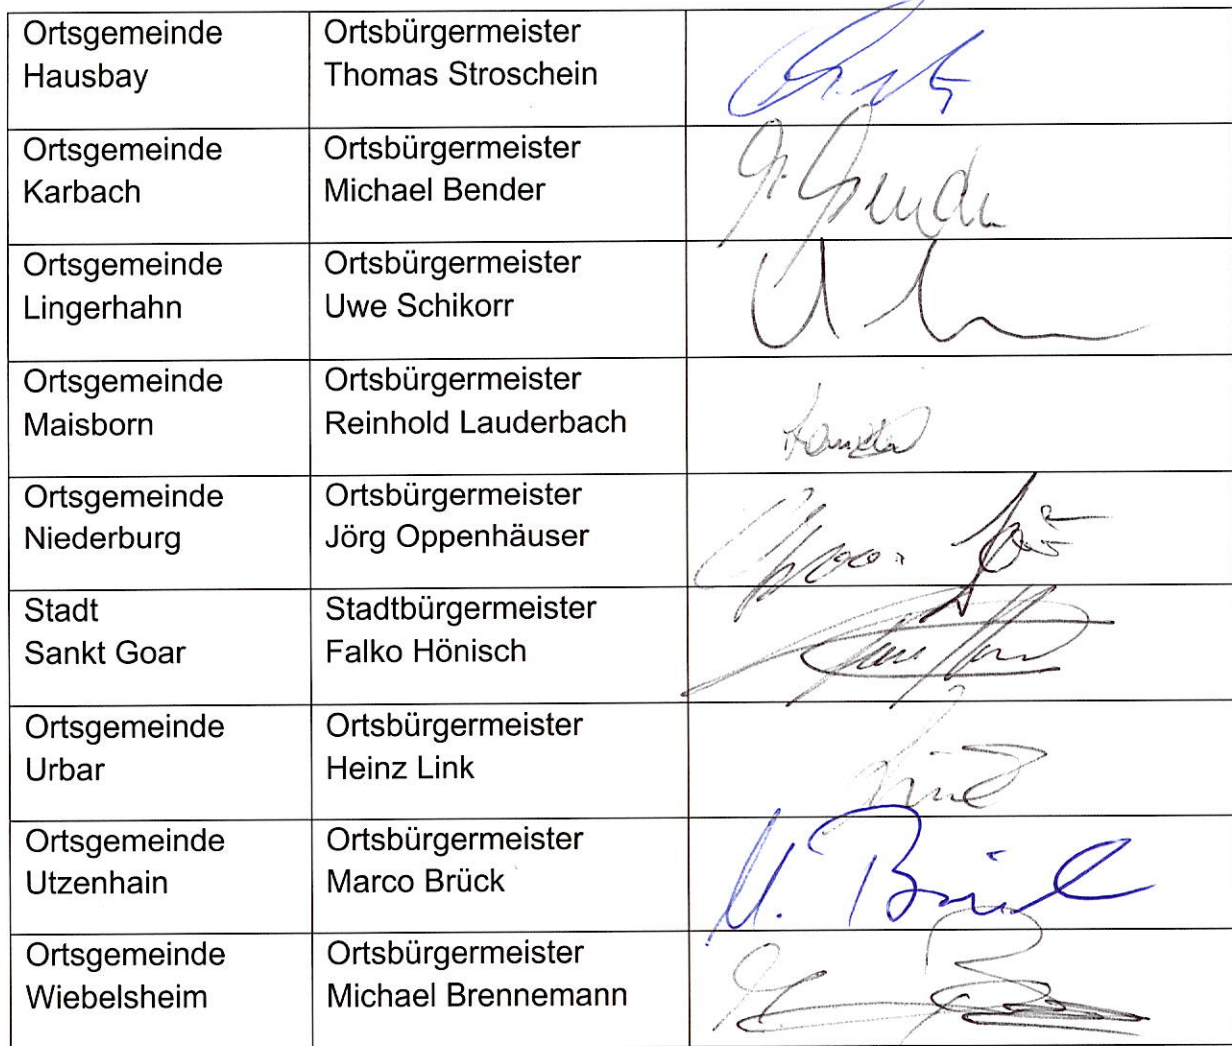 Ortsgemeinde
Hausbay
Ortsbürgermeister
Thomas Stroschein
Ortsgemeinde
Karbach
Ortsbürgermeister
Michael Bender
Ortsgemeinde
Lingerhahn
Ortsbürgermeister
Uwe Schikorr
Ortsgemeinde
Maisborn
Ortsbürgermeister
Reinhold Lauderbach
Ortsgemeinde
Niederburg
Ortsbürgermeister
Jörg Oppenhäuser
Stadt
Sankt Goar
Stadtbürgermeister
Falko Hönisch
Ortsgemeinde
Urbar
Ortsbürgermeister
Heinz Link
Ortsgemeinde
Utzenhain
Ortsbürgermeister
Marco Brück
M. Brück
Ortsgemeinde
Wiebelsheim
Ortsbürgermeister
Michael Brennemann